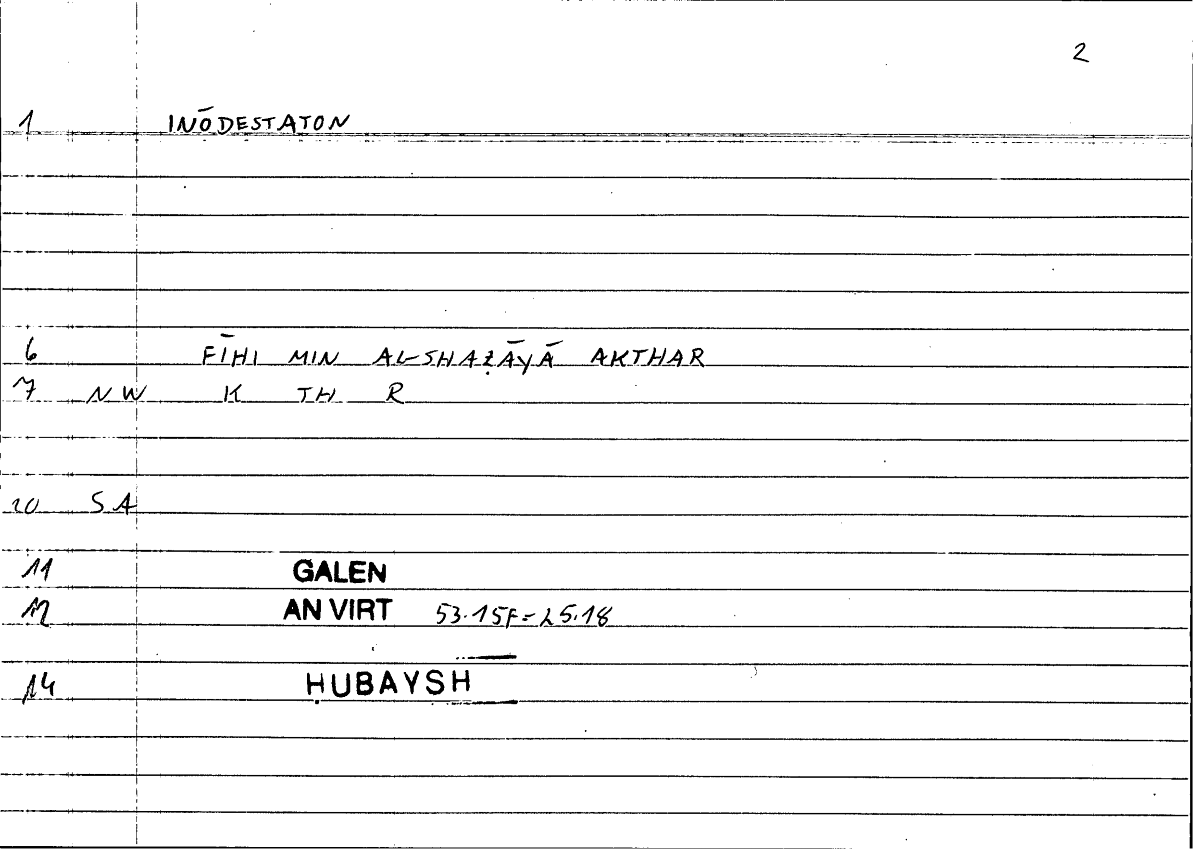 2
1 INŌDESTATON
6 FĪHI MIN AL-SHAẒĀYĀ AKTHAR
7 NW K TH R
10 SA
11 GALEN
12 AN VIRT 53.15F=25.18
14 ḤUBAYSH